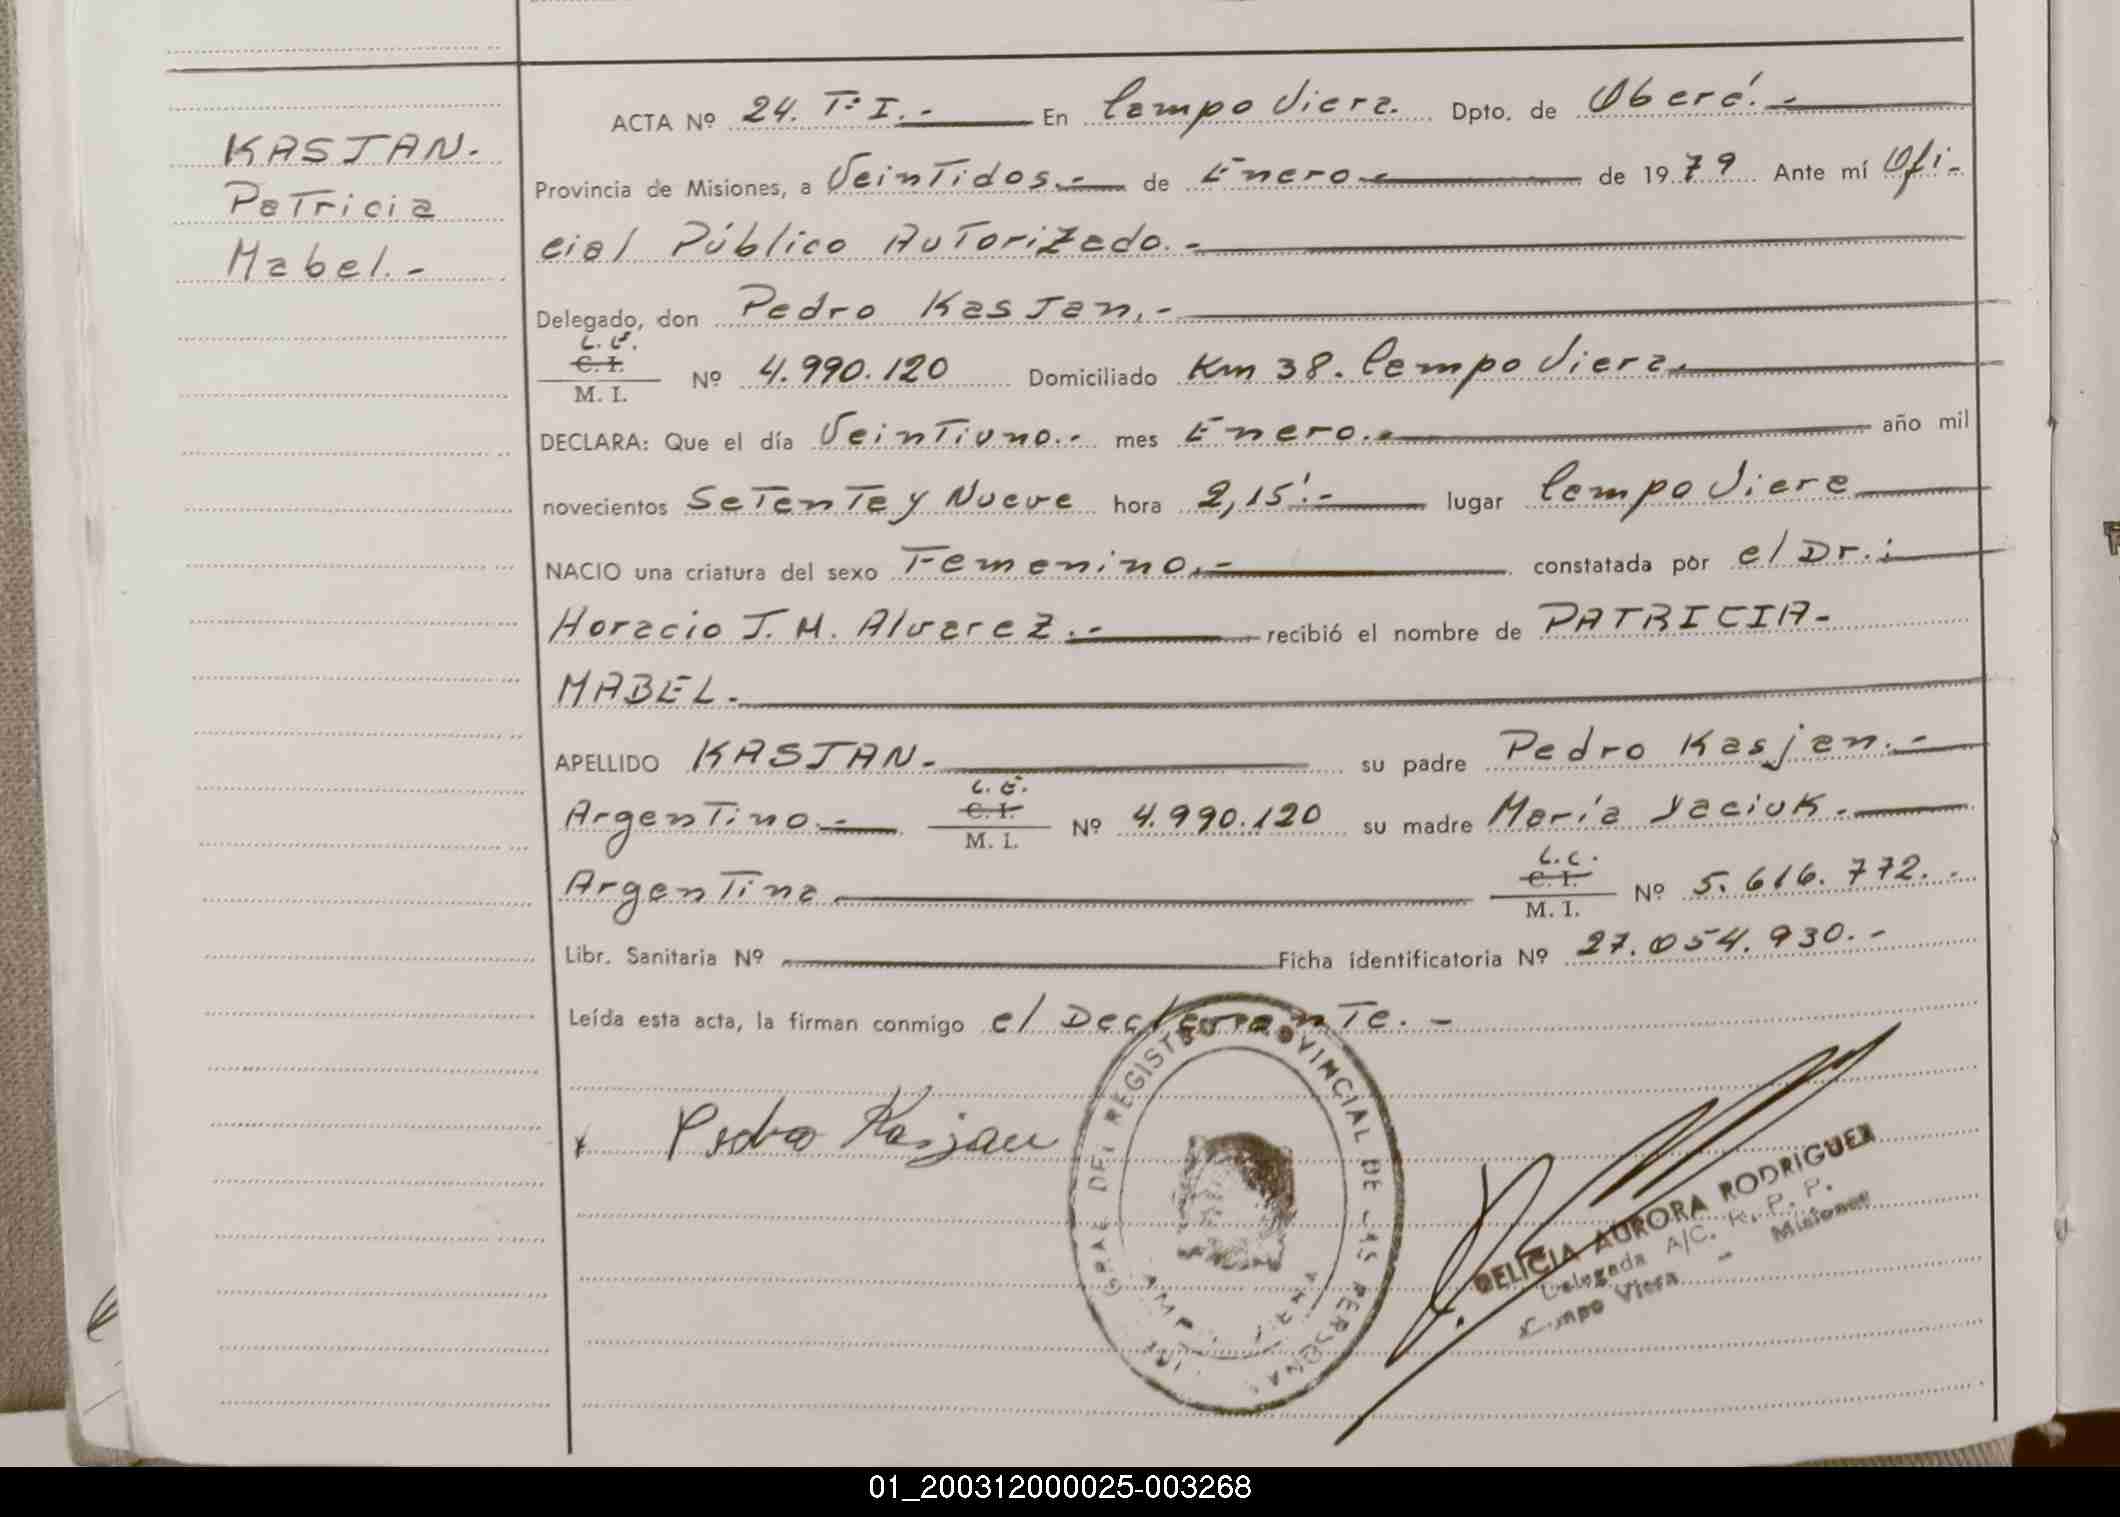 KASJAN.
Patricia
Mabel.-
ACTA Nº 24. Tº I.- En Campo Viera. Dpto. de Oberá.-
Provincia de Misiones, a Veintidos.- de Enero.- de 1979 Ante mí Ofi-
cial Público Autorizado.-
Delegado, don Pedro Kasjan.-
L.E.
C. I.
M. I. Nº 4.990.120 Domiciliado Km 38. Campo Viera.
DECLARA: Que el día Veintiuno.- mes Enero.- año mil
novecientos Setenta y Nueve hora 2,15'.- lugar Campo Viera
NACIO una criatura del sexo Femenino.- constatada por el Dr.:
Horacio J. M. Alvarez.- recibió el nombre de PATRICIA-
MABEL.
APELLIDO KASJAN.- su padre Pedro Kasjan.-
L.E.
Argentino.- C. I.
M. I. Nº 4.990.120 su madre María Yaciuk.-
L.C.
Argentina C. I.
M. I. Nº 5.616.772.-
Libr. Sanitaria Nº Ficha identificatoria Nº 27.054.930.-
Leída esta acta, la firman conmigo el Declarante.-
Pedro Kasjan
GRAL DEL REGISTRO PROVINCIAL DE LAS PERSONAS
DELICIA AURORA RODRIGUEZ
Delegada A/C. R. P. P.
Campo Viera - Misiones
01_200312000025-003268